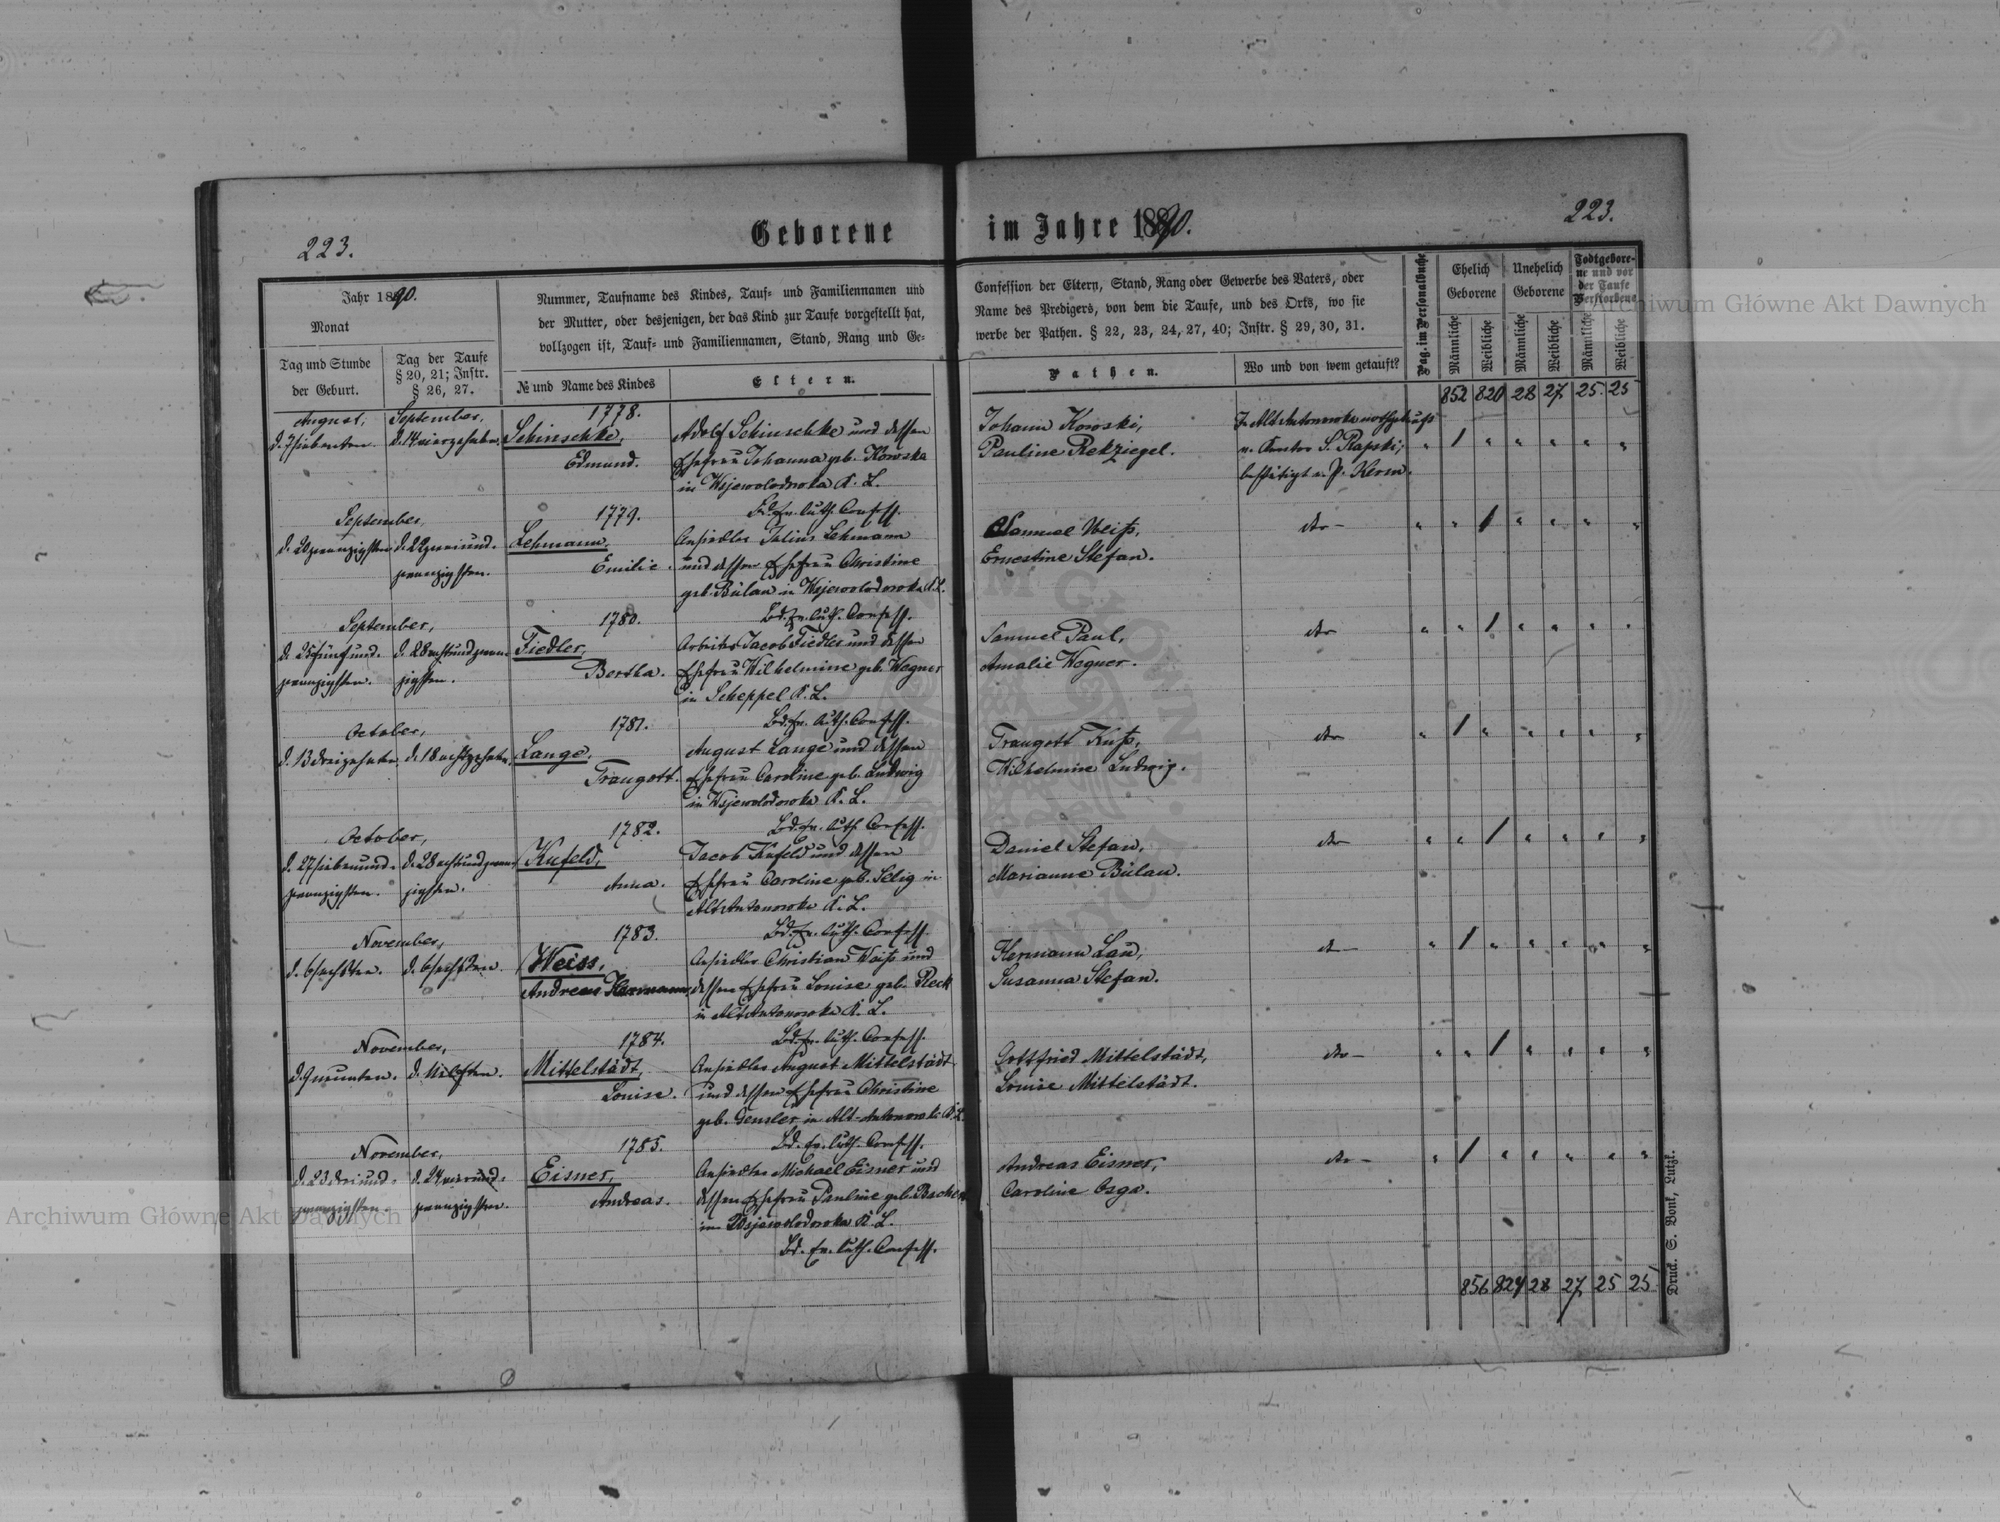 223.
Geborene
im Jahre 1890.
223.
Jahr 1890.
Monat
Tag und Stunde
der Geburt.
Tag der Taufe
§ 20, 21; Instr.
§ 26, 27.
Nummer, Taufname des Kindes, Tauf- und Familiennamen und
der Mutter, oder desjenigen, der das Kind zur Taufe vorgestellt hat,
vollzogen ist, Tauf- und Familiennamen, Stand, Rang und Ge-
№ und Name des Kindes
Eltern.
Confession der Eltern, Stand, Rang oder Gewerbe des Vaters, oder
Name des Predigers, von dem die Taufe, und des Orts, wo sie
werbe der Pathen. § 22, 23, 24, 27, 40; Instr. § 29, 30, 31.
Pathen.
Wo und von wem getauft?
Pag. im Personalbuche
Ehelich
Geborene
Unehelich
Geborene
Todtgebore-
ne und vor
der Taufe
Verstorbene
Männliche
Weibliche
Männliche
Weibliche
Männliche
Weibliche
852 820 28 27 25 25
August, September,
d. 7 siebenten. d. 14 vierzehnten.
1778.
Schinschke,
Edmund.
Adolf Schinschke und dessen
Ehefrau Johanna geb. Koroska
in Wsjewolodowka K. L.
Bd. Ev. luth. Confess.
Johann Koroski,
Pauline Rekziegel.
In Alt Antonowka nothgetauft
v. Cantor S. Rapski;
bestätigt v. P. Kerm.
September,
d. 20 zwanzigsten d. 22 zweiund-
zwanzigsten.
1779.
Lehmann,
Emilie.
Ansiedler Julius Lehmann
und dessen Ehefrau Christine
geb. Bülau in Wsjewolodowka K. L.
Bd. Ev. luth. Confess.
Samuel Weiß,
Ernestine Stefan.
dto
September,
d. 25 fünfund- d. 28 achtundzwan-
zwanzigsten. zigsten.
1780.
Fiedler,
Bertha.
Arbeiter Jacob Fiedler und dessen
Ehefrau Wilhelmine geb. Wegner
in Scheppel K. L.
Bd. Ev. luth. Confess.
Samuel Paul,
Amalie Wegner.
dto
October,
d. 13 dreizehnten d. 18 achtzehnten.
1781.
Lange,
Traugott.
August Lange und dessen
Ehefrau Caroline geb. Ludwig
in Wsjewolodowka K. L.
Bd. Ev. luth Confess.
Traugott Kuß,
Wilhelmine Ludwig.
dto
October,
d. 27 siebenund- d. 28 achtundzwan-
zwanzigsten. zigsten.
1782.
Kufeld,
Anna.
Jacob Kufeld und dessen
Ehefrau Caroline geb. Selig in
Alt Antonowka K. L.
Bd. Ev. luth. Confess.
Daniel Stefan,
Marianne Bülau.
dto
November,
d. 6 sechsten. d. 6 sechsten.
1783.
Weiss,
Andreas Hermann.
Ansiedler Christian Weiß und
dessen Ehefrau Louise geb. Reck
in Alt Antonowka K. L.
Bd. Ev. luth. Confess.
Hermann Lau,
Susanna Stefan.
dto
November,
d. 9 neunten. d. 11 elften.
1784.
Mittelstädt,
Louise.
Ansiedler August Mittelstädt
und dessen Ehefrau Christine
geb. Gensler in Alt-Antonowka K. L.
Bd. Ev. luth. Confess.
Gottfried Mittelstädt,
Louise Mittelstädt.
dto
November,
d. 23 dreiund- d. 24 vierund-
zwanzigsten. zwanzigsten.
1785.
Eisner,
Andreas.
Ansiedler Michael Eisner und
dessen Ehefrau Pauline geb.
in Wsjewolodowka K. L.
Bd. Ev. luth. Confess.
Andreas Eisner,
Caroline Osga.
dto
856 824 28 27 25 25
Druck. S. Bont, Lutzk.
Archiwum Główne Akt Dawnych
Archiwum Główne Akt Dawnych